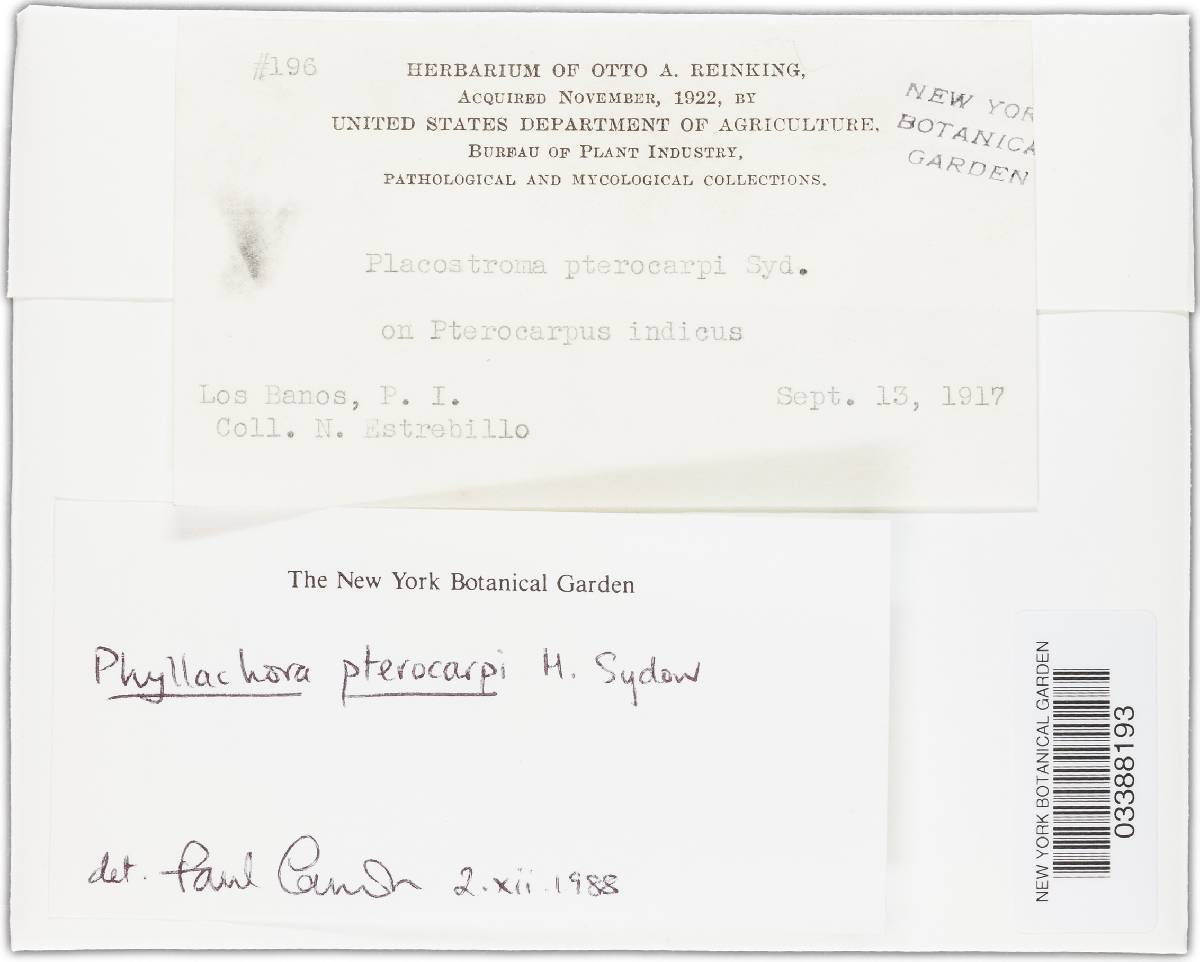 #196
HERBARIUM OF OTTO A. REINKING,
ACQUIRED NOVEMBER, 1922, BY
UNITED STATES DEPARTMENT OF AGRICULTURE,
BUREAU OF PLANT INDUSTRY,
PATHOLOGICAL AND MYCOLOGICAL COLLECTIONS.
NEW YOR
BOTANICA
GARDEN
Placostroma pterocarpi Syd.
on Pterocarpus indicus
Los Banos, P. I.
Sept. 13, 1917
Coll. N. Estrebillo
The New York Botanical Garden
Phyllachora pterocarpi H. Sydow
det. Paul Cannon 2.xii.1988
NEW YORK BOTANICAL GARDEN
03388193